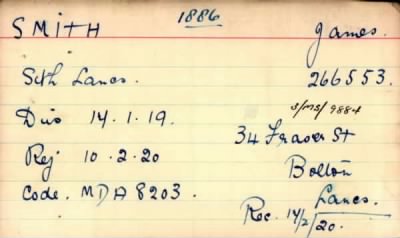 1886
SMITH James.
5th Lancs. 266553.
Dis 14.1.19. S/MS/9884
34 Fraser St
Rej 10.2.20
Bolton
Code. MDA 8203. Lancs.
Rec. 14/2/20.